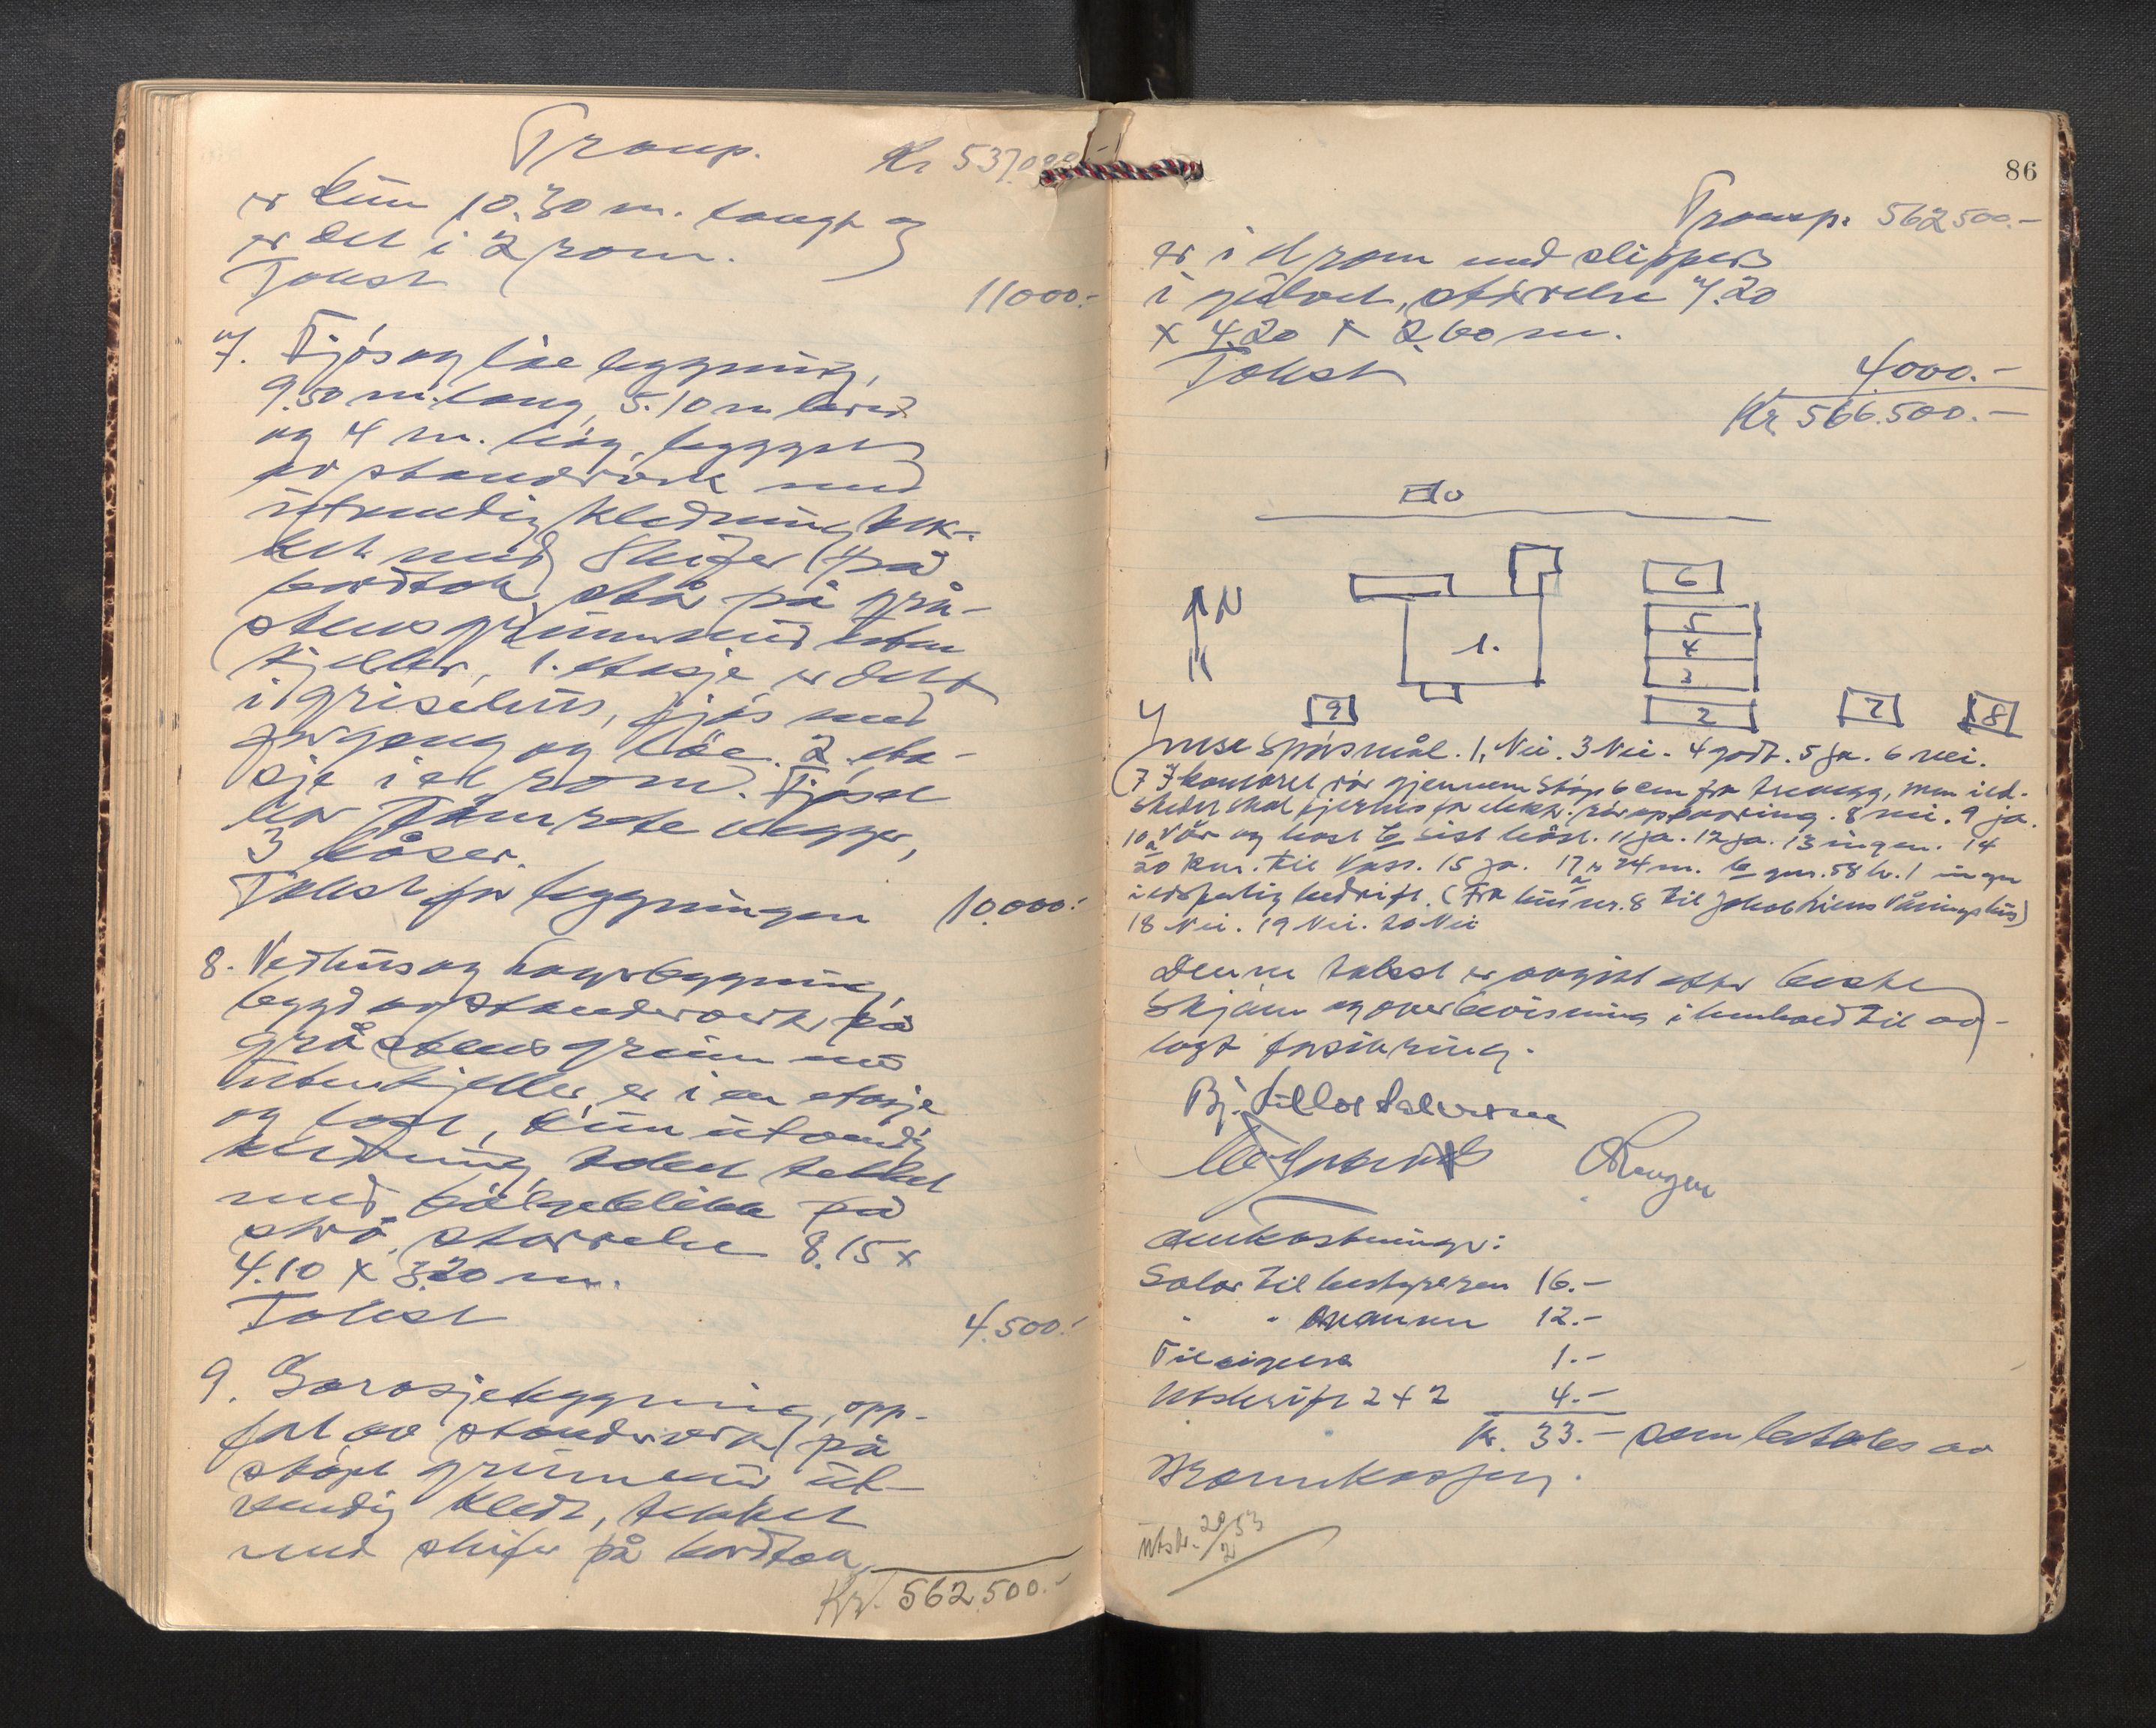 Transp. Kr 537.000.-
er kun 10.30 m. langt og
er delt i 2 rom.
Takst 11000.-
7. Fjøs og løe bygning,
9.50 m. lang, 5.10 m bred
og 4 m. høg, bygget
av standverk med
utvendig kledning, tek-
ket med Skifer på
bordtak, står på grå-
steins grunnmur uten
kjeller, 1. etasje er delt
i grisehus, fjøs med
forgang og løe. 2. eta-
sje i et rom. Fjøset
har Tømrete vegger,
3 båser.
Takst for bygningen 10.000.-
8. Vedhus og lagerbygning,
bygd av standerverk på
gråsteins grunnmur
uten kjeller er i en etasje
og loft, kun utvendig
kledning, taket tekket
med bølgeblikk på
strø, størrelse 8.15 x
4.10 x 3.20 m.
Takst 4.500.-
9. Garasjebygning, opp-
ført av standverk på
støpt grunnmur ut-
vendig kledt, tekket
med skifer på bordtak,
Kr. 562.500.-
86
Transp. 562500.-
er i et rom med slippers
i gulvet, størrelse 7.20
x 4.20 x 2.60 m.
Takst 4000.-
Kr. 566.500.-
10
N
6
5
1. 4
3
9 2 7 8
Ymse Spørsmål. 1. Nei. 3 Nei. 4 godt. 5 ja. 6 nei.
7 I kontoret rør gjennem Støp 6 cm fra trevegg, men ild-
stedet skal fjernes for elektr. 8 nei. 9 ja.
10 a Vår og høst b sist høst. 11 ja. 12 ja. 13 ingen. 14
20 km. til Voss. 15 ja. 17 a 24 m. b gnr. 58 b. 1 ingen
ildsfarlig bedrift. (Fra hus nr. 8 til Våningshus)
18 Nei. 19 Nei. 20 Nei
Denne takst er avgitt etter beste
Skjønn og overbevisning i henhold til av-
lagt forsikring.
omkostninger:
Salar til bestyreren 16.-
" " mannen 12.-
Til 1.-
Utskrift 2 + 2 4.-
Kr. 33.- som betales av
Brannkassen.
Utskr. 20/2 53